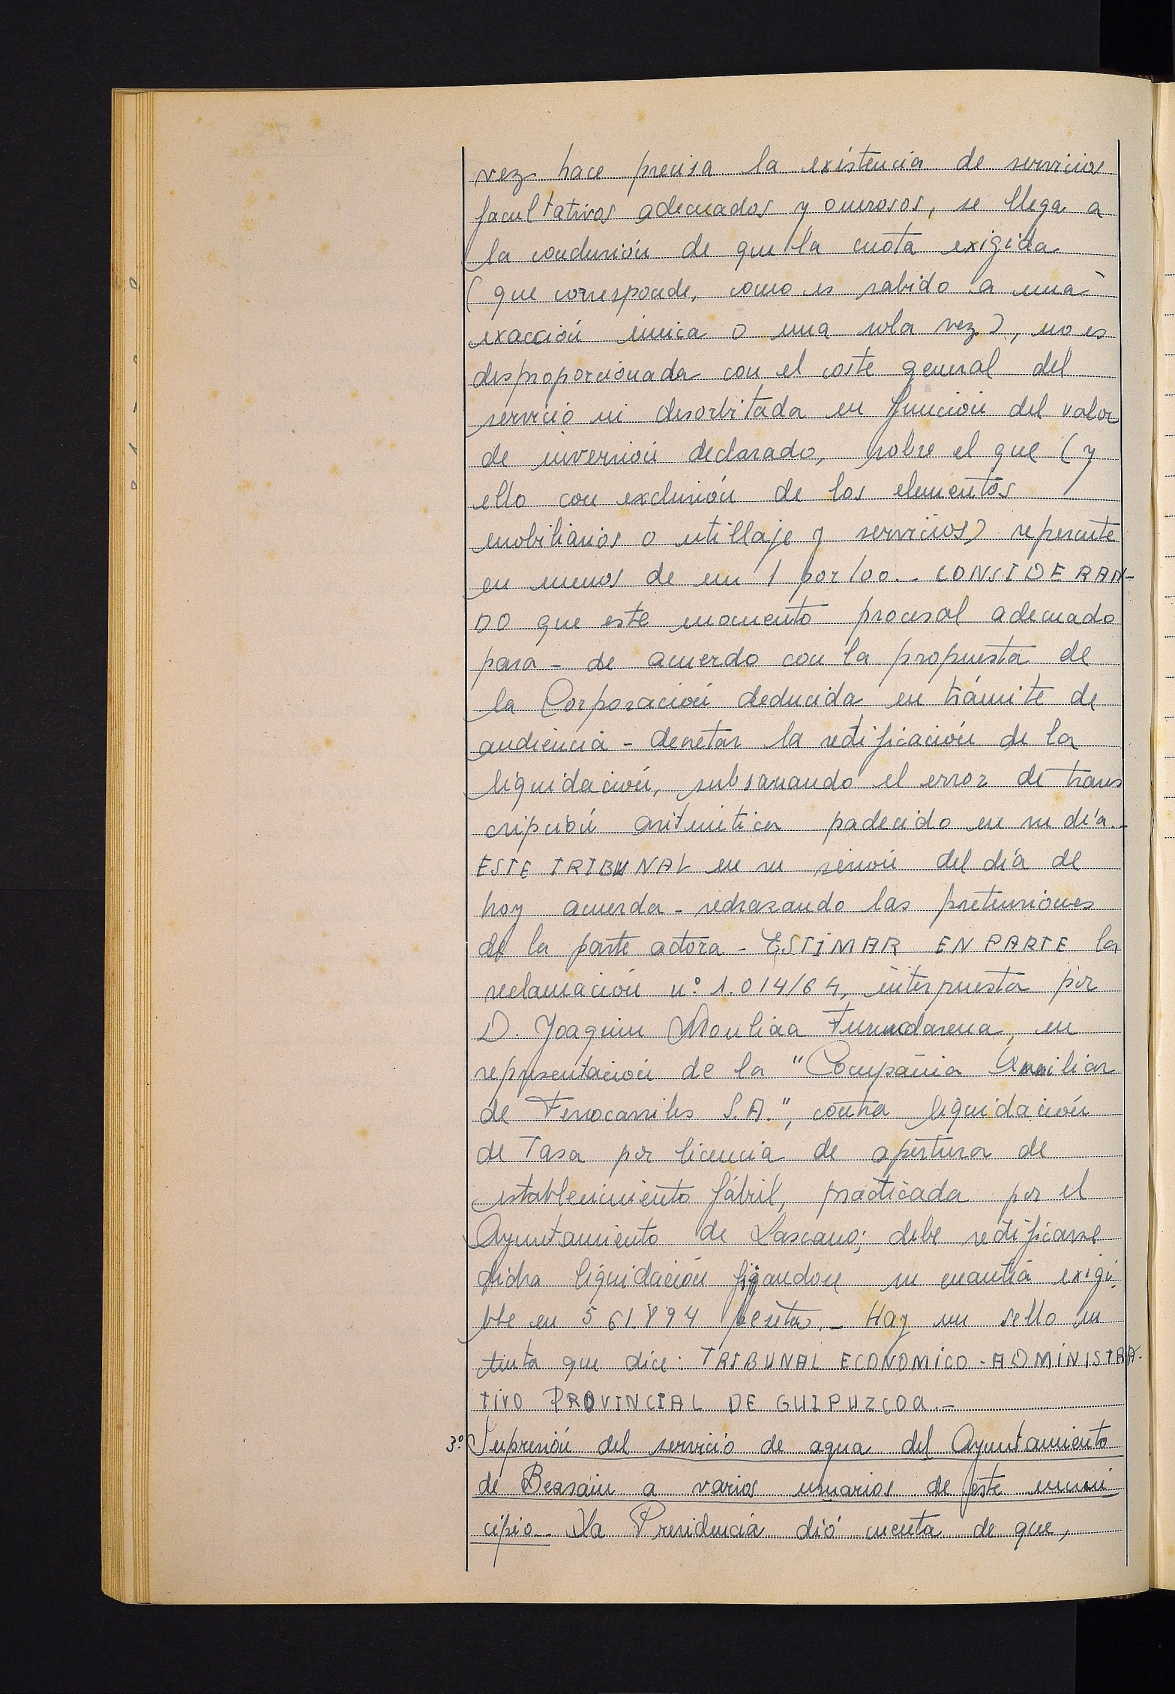 vez hace precisa la existencia de servicios
facultativos adecuados y onerosos, se llega a
la conclusión de que la cuota exigida
(que corresponde, como es sabido a una
exacción única o una sola vez), no es
desproporcionada con el coste general del
servicio ni desorbitada en función del valor
de inversión declarado, sobre el que (y
ello con exclusión de los elementos
mobiliarios o utillaje y servicios) repercute
en menos de un 1 por 100.- CONSIDERAN-
DO que este momento procesal adecuado
para - de acuerdo con la propuesta de
la Corporación deducida en trámite de
audiencia - decretar la rectificación de la
liquidación, subsanando el error de trans
cripción aritmética padecido en su día.-
ESTE TRIBUNAL en su sesión del día de
hoy acuerda - rechazando las pretensiones
de la parte actora - ESTIMAR EN PARTE la
reclamación nº 1.014/64, interpuesta por
D. Joaquin Mouliaa en
representación de la "Compañia Auxiliar
de Ferrocarriles S.A.", contra liquidación
de Tasa por licencia de apertura de
establecimiento fábril, practicada por el
Ayuntamiento de Lazcano; debe rectificarse
dicha liquidación fijandose su cuantía exigi
ble en 561.894 peseta.- Hay un sello en
tinta que dice: TRIBUNAL ECONOMICO-ADMINISTRA-
TIVO PROVINCIAL DE GUIPUZCOA.-
3º Supresión del servicio de agua del Ayuntamiento
de Beasain a varios usuarios de este muni
cipio.- La Presidencia dió cuenta de que,